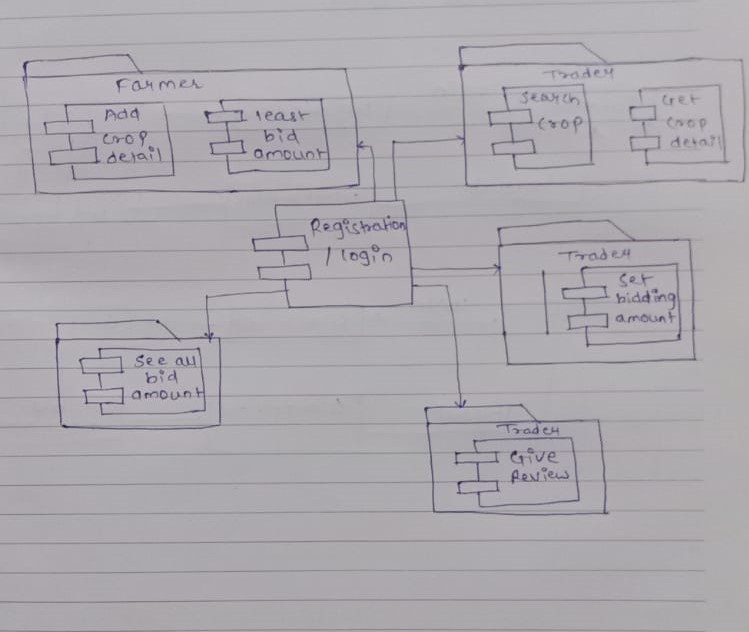 Farmer
Add
crop
detail
least
bid
amount
Trader
Search
crop
Get
crop
detail
Registration
/ login
Trader
Set
bidding
amount
See all
bid
amount
Trader
Give
Review